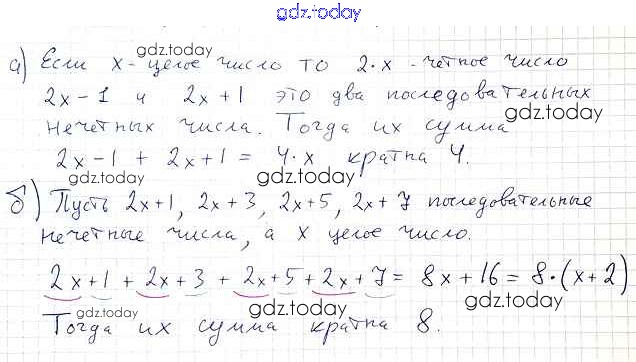 gdz.today
gdz.today
а) Если x - целое число то 2·x - четное число
2x - 1 и 2x + 1 это два последовательных
gdz.today
нечетных числа. Тогда их сумма
2x - 1 + 2x + 1 = 4·x кратна 4.
gdz.today gdz.today
б) Пусть 2x+1, 2x+3, 2x+5, 2x+7 последовательные
нечетные числа, а x целое число.
gdz.today
2x + 1 + 2x + 3 + 2x + 5 + 2x + 7 = 8x + 16 = 8·(x + 2)
gdz.today gdz.today gdz.today
Тогда их сумма кратна 8.